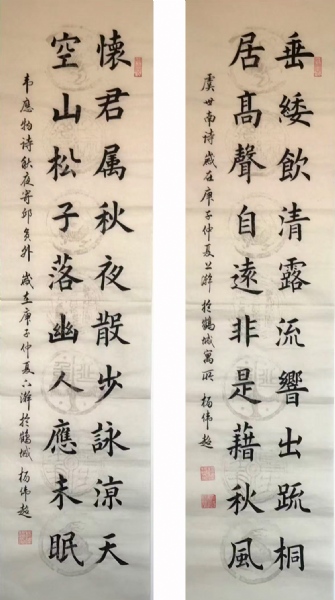 垂緌飲清露流響出疏桐
居高聲自遠非是藉秋風
虞世南诗歲在庚子仲夏上澣於鶴城寓所 楊伟超
懷君属秋夜散步詠凉天
空山松子落幽人應未眠
韦應物诗秋夜寄邱員外 歲在庚子仲夏上澣於鶴城 楊伟超